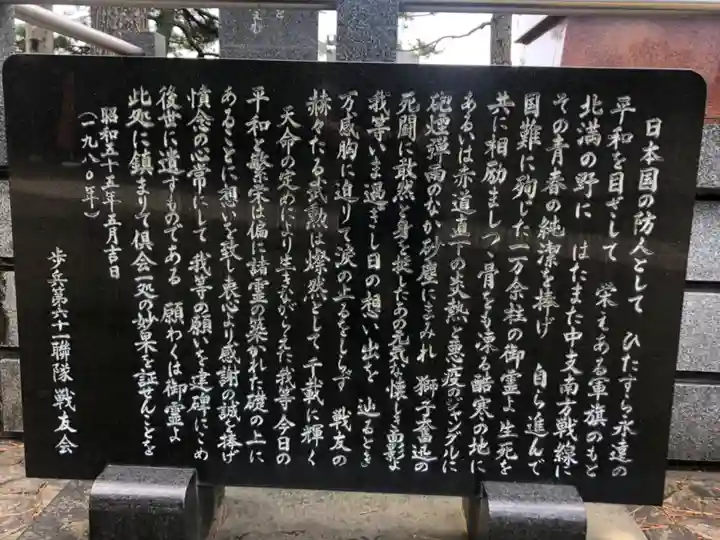 日本国の防人として ひたすら永遠の
平和を目ざして 栄えある軍旗のもと
北満の野に はたまた中支南方戦線に
その青春の純潔を捧げ 自ら進んで
国難に殉じた一万余柱の御霊よ 生死を
共に相励ましつつ 骨をも凍る酷寒の地に
あるいは赤道直下の炎熱と悪疫のジャングルに
砲煙弾雨のなか砂塵にまみれ 獅子奮迅の
死闘に敢然と身を挺したあの元気な懐しい面影よ
我等いま過ぎし日の想い出を 辿るとき
万感胸に迫りて涙の上るをしらず 戦友の
赫々たる武勲は燦然として 千載に輝く
天命の定めにより生きながらえた我等 今日の
平和と繁栄は偏に諸霊の築かれた礎の上に
あることに想いを致し衷心より感謝の誠を捧げ
慎念の心常にして 我等の願いを建碑にこめ
後世に遺すものである 願わくは御霊よ
此処に鎮まりて倶会一処の妙果を証せんことを
昭和五十五年五月吉日
(一九八〇年)
歩兵第六十一聯隊戦友会